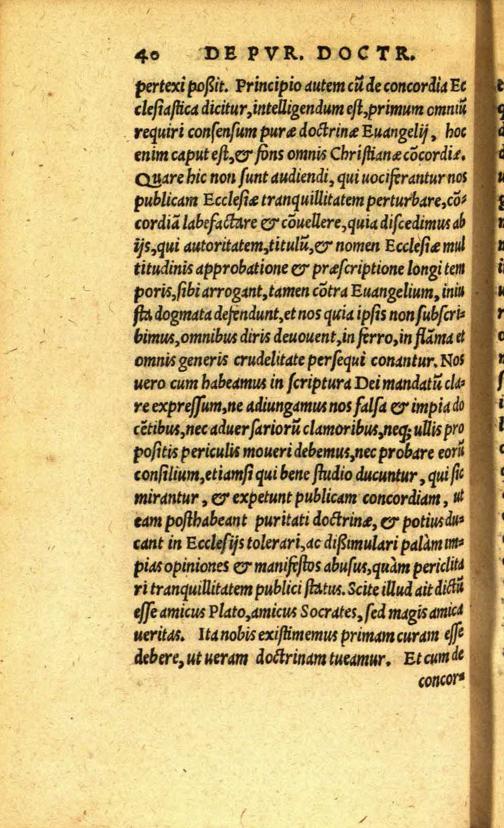 40 DE PVR. DOCTR.
pertexi poßit. Principio autem cũ de concordia Ec
clesiastica dicitur, intelligendum est, primum omniũ
requiri consensum puræ doctrinæ Euangelij, hoc
enim caput est, & fons omnis Christianæ cõcordiæ.
Quare hic non sunt audiendi, qui uociferantur nos
publicam Ecclesiæ tranquillitatem perturbare, cõ-
cordiã labefactare & cõuellere, quia discedimus ab
ijs, qui autoritatem, titulũ, & nomen Ecclesiæ mul
titudinis approbatione & præscriptione longi tem
poris, sibi arrogant, tamen cõtra Euangelium, iniu
sta dogmata defendunt, et nos quia ipsis non subscri-
bimus, omnibus diris deuouent, in ferro, in flãma et
omnis generis crudelitate persequi conantur. Nos
uero cum habeamus in scriptura Dei mandatũ cla-
re expressum, ne adiungamus nos falsa & impia do
cẽtibus, nec aduersariorũ clamoribus, neq; ullis pro
positis periculis moueri debemus, nec probare eorũ
consilium, etiamsi qui bene studio ducuntur, qui sic
mirantur, & expetunt publicam concordiam, ut
eam posthabeant puritati doctrinæ, & potius du-
cant in Ecclesijs tolerari, ac dißimulari palàm im-
pias opiniones & manifestos abusus, quàm periclita
ri tranquillitatem publici status. Scite illud ait dictũ
esse amicus Plato, amicus Socrates, sed magis amica
ueritas. Ita nobis existimemus primam curam esse
debere, ut ueram doctrinam tueamur. Et cum de
concor-